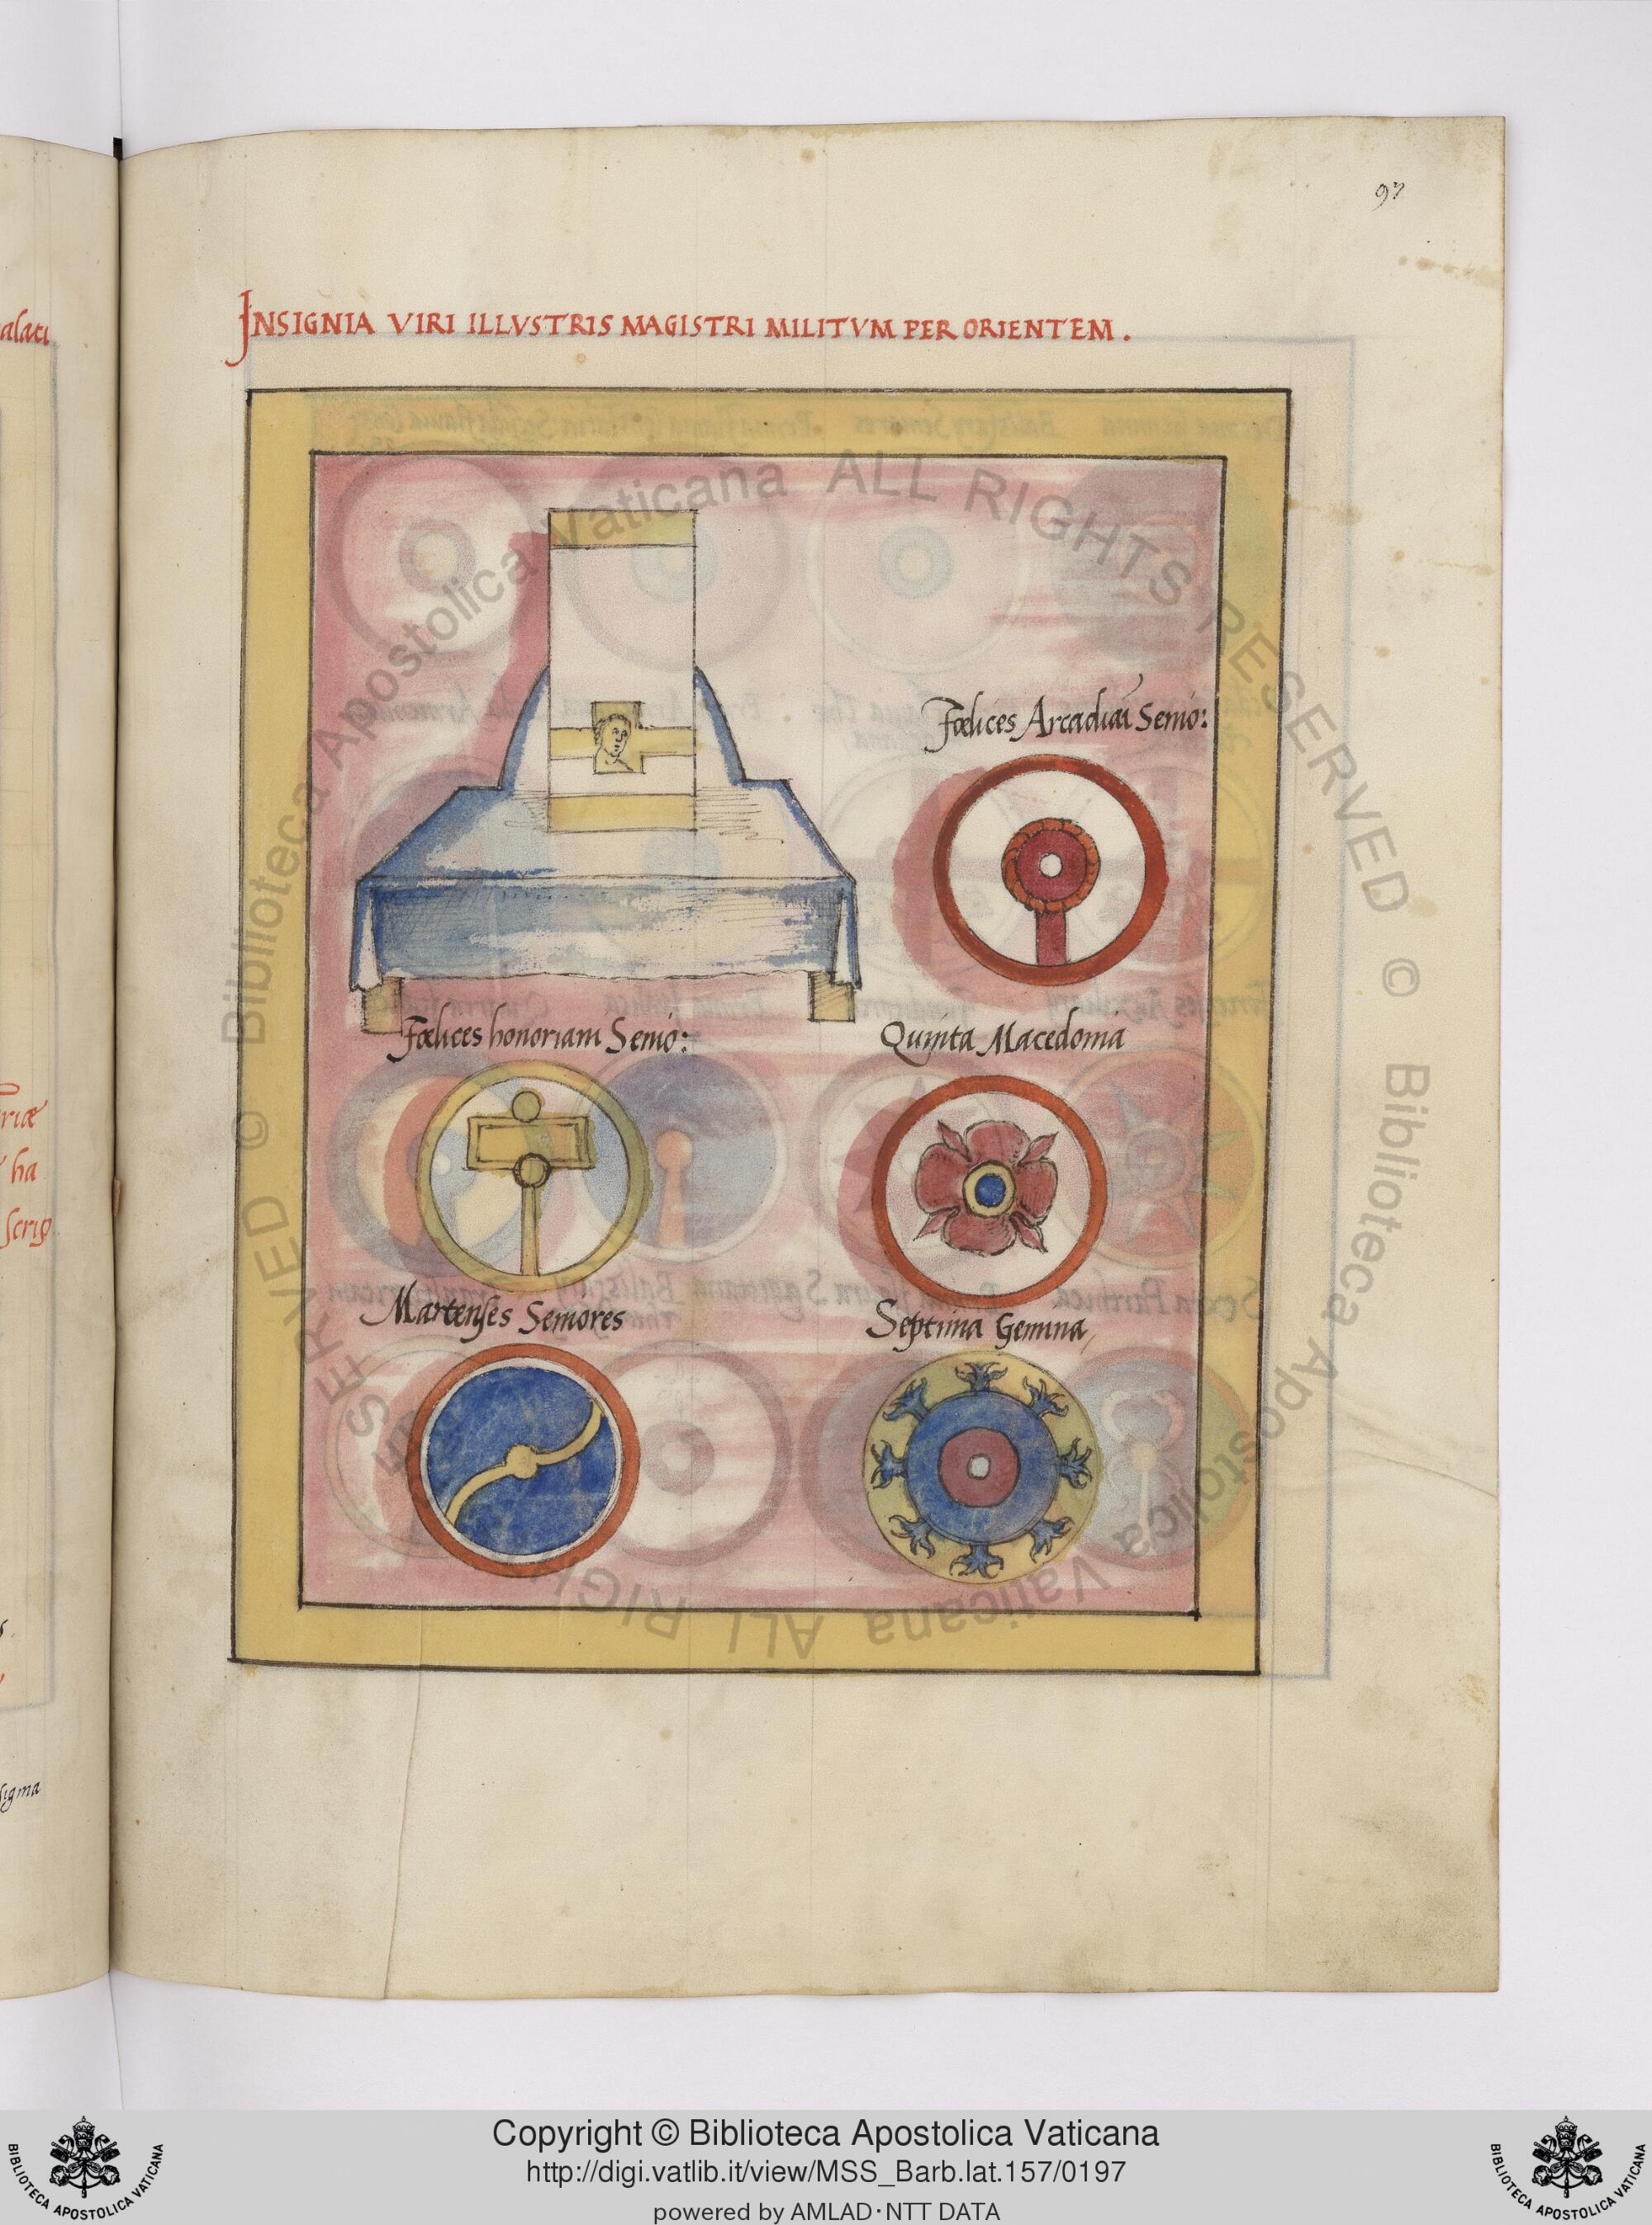 97
INSIGNIA VIRI ILLVSTRIS MAGISTRI MILITVM PER ORIENTEM.
Fœlices Arcadiāi Senio:
Fœlices honoriani Senio:
Quinta Macedonia
Martenses Seniores
Septima Gemina
alati
riæ
ha
© Biblioteca Apostolica Vaticana ALL RIGHTS RESERVED
© Biblioteca Apostolica Vaticana ALL RIGHTS RESERVED
Copyright © Biblioteca Apostolica Vaticana
http://digi.vatlib.it/view/MSS_Barb.lat.157/0197
powered by AMLAD·NTT DATA
BIBLIOTECA APOSTOLICA VATICANA
BIBLIOTECA APOSTOLICA VATICANA